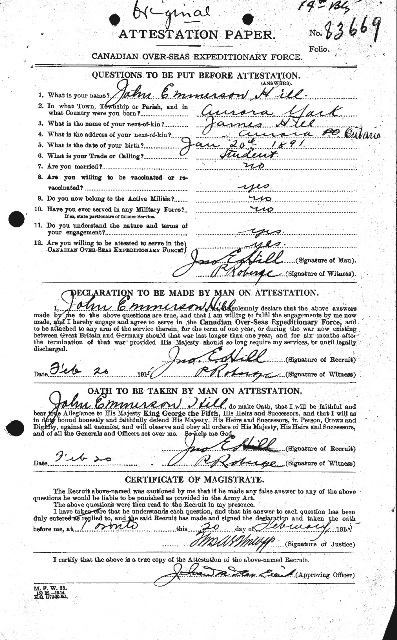 Original
ATTESTATION PAPER.
No. 83669
Folio.
CANADIAN OVER-SEAS EXPEDITIONARY FORCE.
QUESTIONS TO BE PUT BEFORE ATTESTATION.
(ANSWERS)
1. What is your name? John Emmerson Hill
2. In what Town, Township or Parish, and in
what Country were you born? Aurora York
3. What is the name of your next-of-kin? James Hill
4. What is the address of your next-of-kin? Aurora PO Ontario
5. What is the date of your birth? Jan 20th 1891
6. What is your Trade or Calling? Student
7. Are you married? no
8. Are you willing to be vaccinated or re-
vaccinated? yes
9. Do you now belong to the Active Militia? no
10. Have you ever served in any Military Force? no
If so, state particulars of former Service.
11. Do you understand the nature and terms of
your engagement? yes
12. Are you willing to be attested to serve in the
CANADIAN OVER-SEAS EXPEDITIONARY FORCE? yes.
Jno E Hill (Signature of Man).
(Signature of Witness)
DECLARATION TO BE MADE BY MAN ON ATTESTATION.
I, John Emmerson Hill, do solemnly declare that the above answers
made by me to the above questions are true, and that I am willing to fulfil the engagements by me now
made, and I hereby engage and agree to serve in the Canadian Over-Seas Expeditionary Force, and
to be attached to any arm of the service therein, for the term of one year, or during the war now existing
between Great Britain and Germany should that war last longer than one year, and for six months after
the termination of that war provided His Majesty should so long require my services, or until legally
discharged.
Jno E Hill (Signature of Recruit)
Date Feb 20 191 (Signature of Witness)
OATH TO BE TAKEN BY MAN ON ATTESTATION.
I, John Emmerson Hill, do make Oath, that I will be faithful and
bear true Allegiance to His Majesty King George the Fifth, His Heirs and Successors, and that I will as
in duty bound honestly and faithfully defend His Majesty, His Heirs and Successors, in Person, Crown and
Dignity, against all enemies, and will observe and obey all orders of His Majesty, His Heirs and Successors,
and of all the Generals and Officers set over me. So help me God.
Jno E Hill (Signature of Recruit)
Date Feb 20 191 (Signature of Witness)
CERTIFICATE OF MAGISTRATE.
The Recruit above-named was cautioned by me that if he made any false answer to any of the above
questions he would be liable to be punished as provided in the Army Act.
The above questions were then read to the Recruit in my presence.
I have taken care that he understands each question, and that his answer to each question has been
duly entered as replied to, and the said Recruit has made and signed the declaration and taken the oath
before me, at Toronto this 20 day of February 1915
(Signature of Justice)
I certify that the above is a true copy of the Attestation of the above-named Recruit.
(Approving Officer)